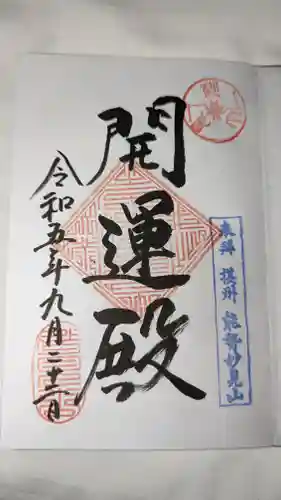 開運殿
奉拝 摂州 能勢妙見山
令和五年九月二十二日